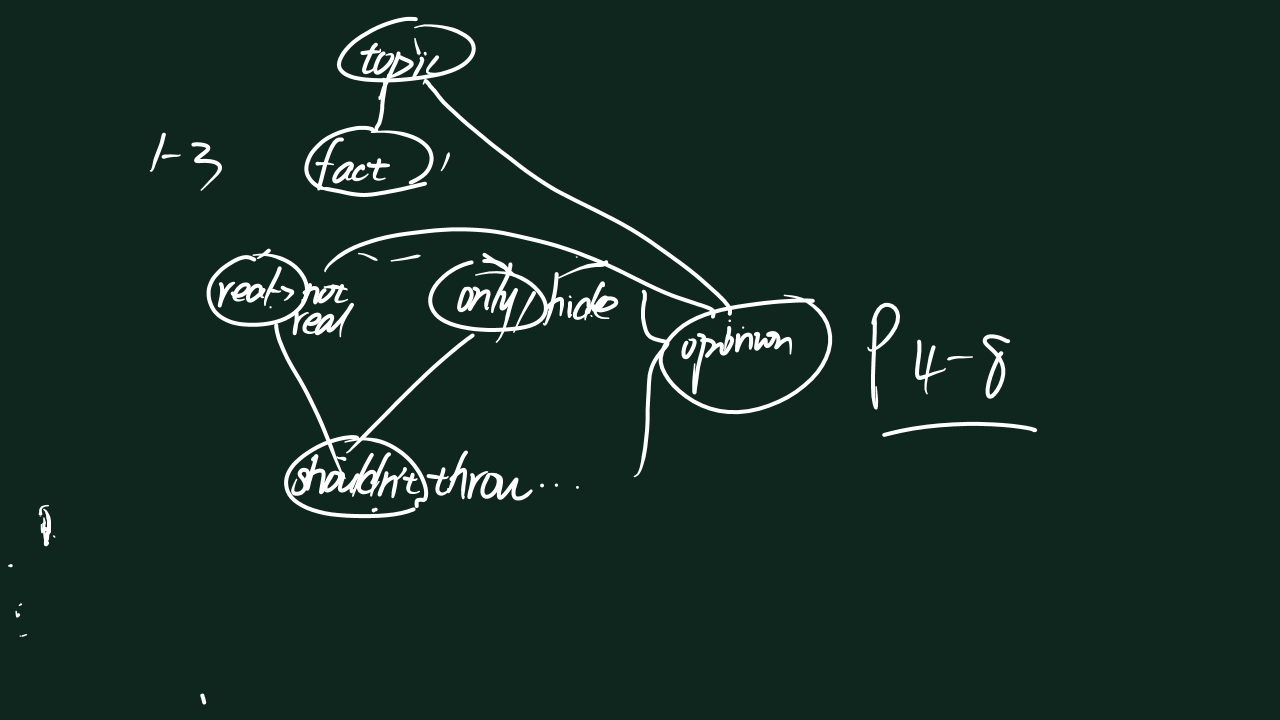 topic
1-3 fact
real->not real
only/hide
opinion
P4-8
shouldn't throu...